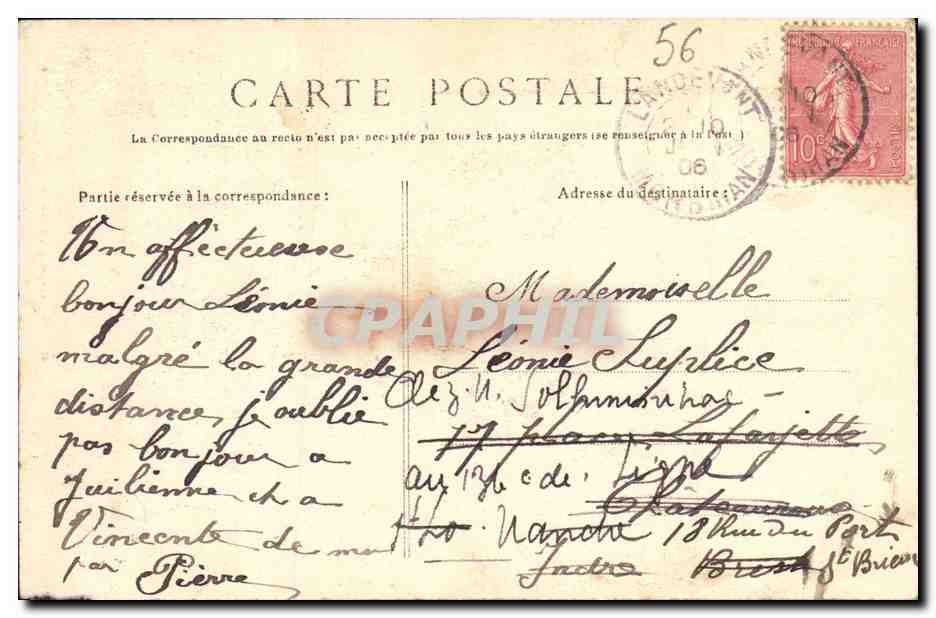 56
CARTE POSTALE
La Correspondance au recto n'est pas acceptée par tous les pays étrangers (se renseigner à la Post )
LANDEVANT
06
MORBIHAN
REPUBLIQUE FRANÇAISE
10c
POSTES
Partie réservée à la correspondance :
Un affectueuse
bonjour Léonie
malgré la grande
distance, je oublie
pas bonjour a
Juilienne et a
Vincente de ma
par Pierre
Adresse du destinataire :
Mademoiselle
Léonie Suplice
chez M.
17 place Lafayette
au 136 e de Ligne
Châteauroux
Indre
18 Rue du Port
Brest St Brieuc
CPAPHIL